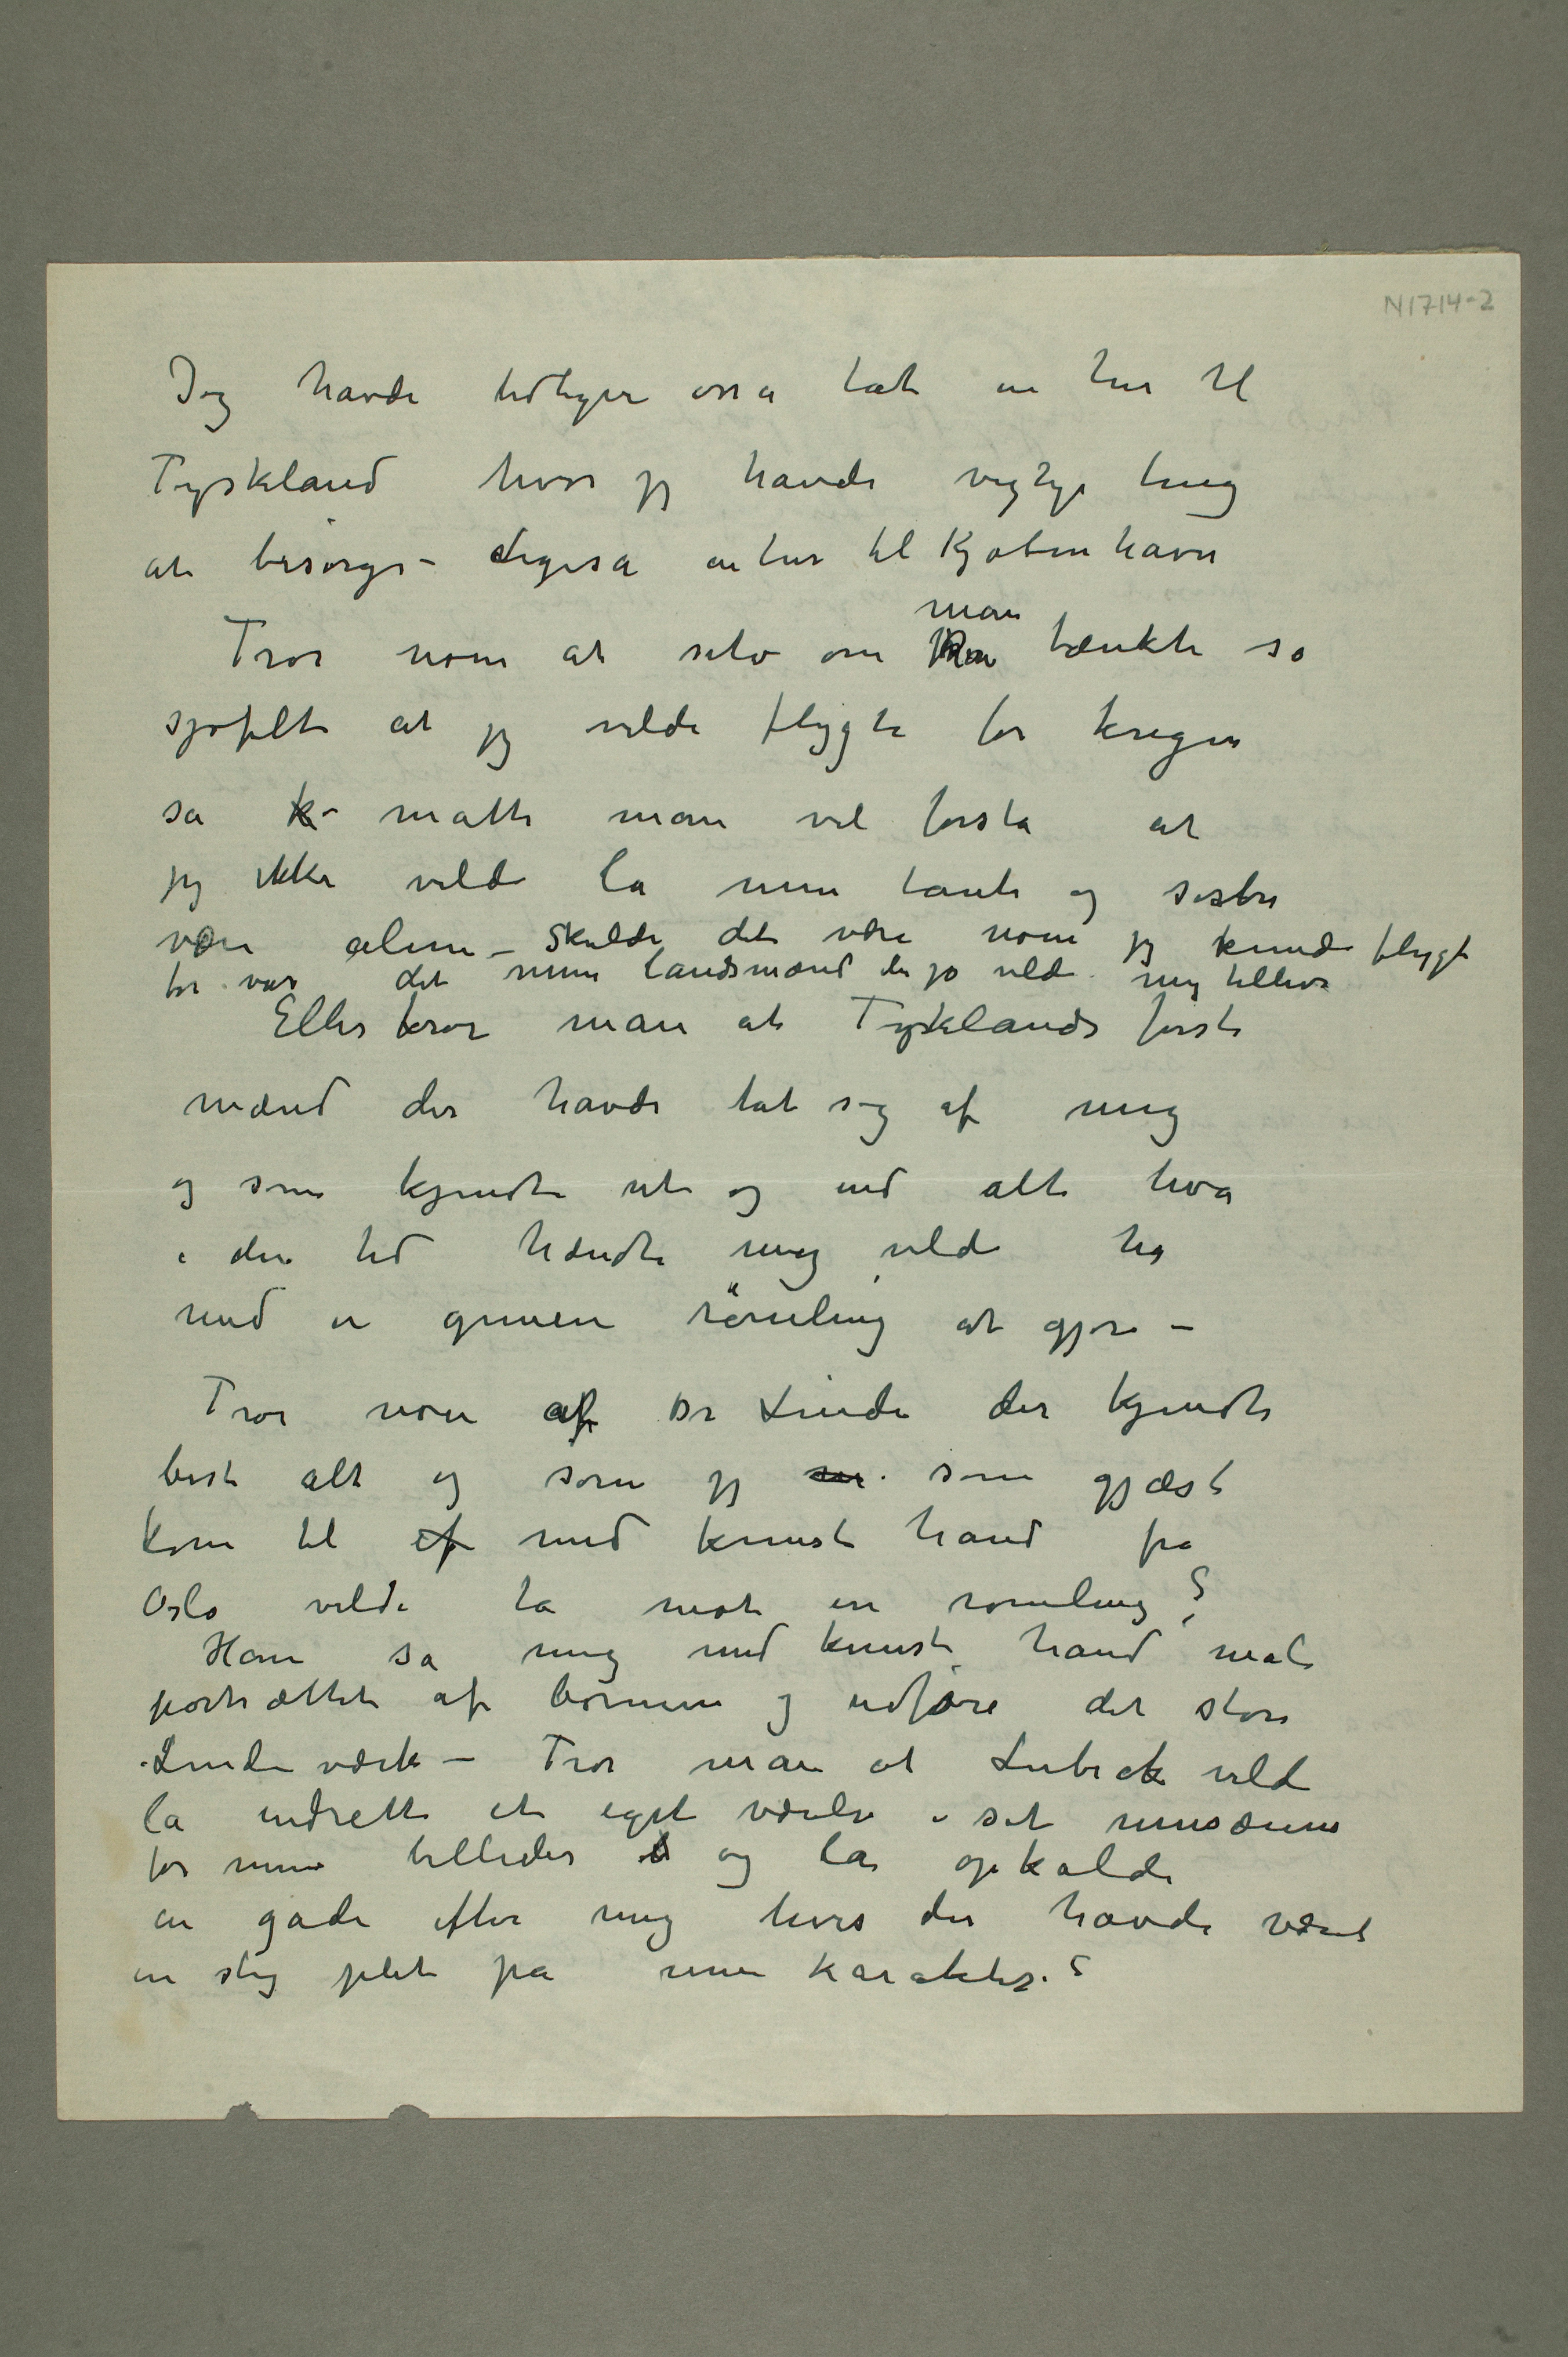 N1714-2
Jeg havde tidligere osså tat en tur til
Tyskland hvor jeg havde vigtige ting
at besørge – Ligeså en tur til Kjøbenhavn
man
Tror noen at selv om tænkte så
sjofelt at jeg vilde flygte for krigen
så k måtte man vel forstå at
jeg ikke vilde la min tante og søster
være alene – Skulde det være noen jeg kunde flygte
for var det mine landsmænd der jo vilde mig tillivs
Eller tror man at Tysklands første
mænd der havde tat sig af mig
og som kjendte ut og ind alt hva
i den tid hændte mig vilde ha
med en gemen rømling at gjøre –
Tror noen af Dr Linde der kjendte
best alt og som jeg som gjæst
kom til ef med knust hånd fra
Oslo vilde ta mot en rømling?
Han så mig med knust hånd male
portrættet af børnene og udføre det store
Linde værk – Tror man at Lübeck vilde
la indrette et eget værelse i sit musæum
for mine billeder og la opkalde
en gade efter mig hvis der havde vært
en slig plet på min karakter.?